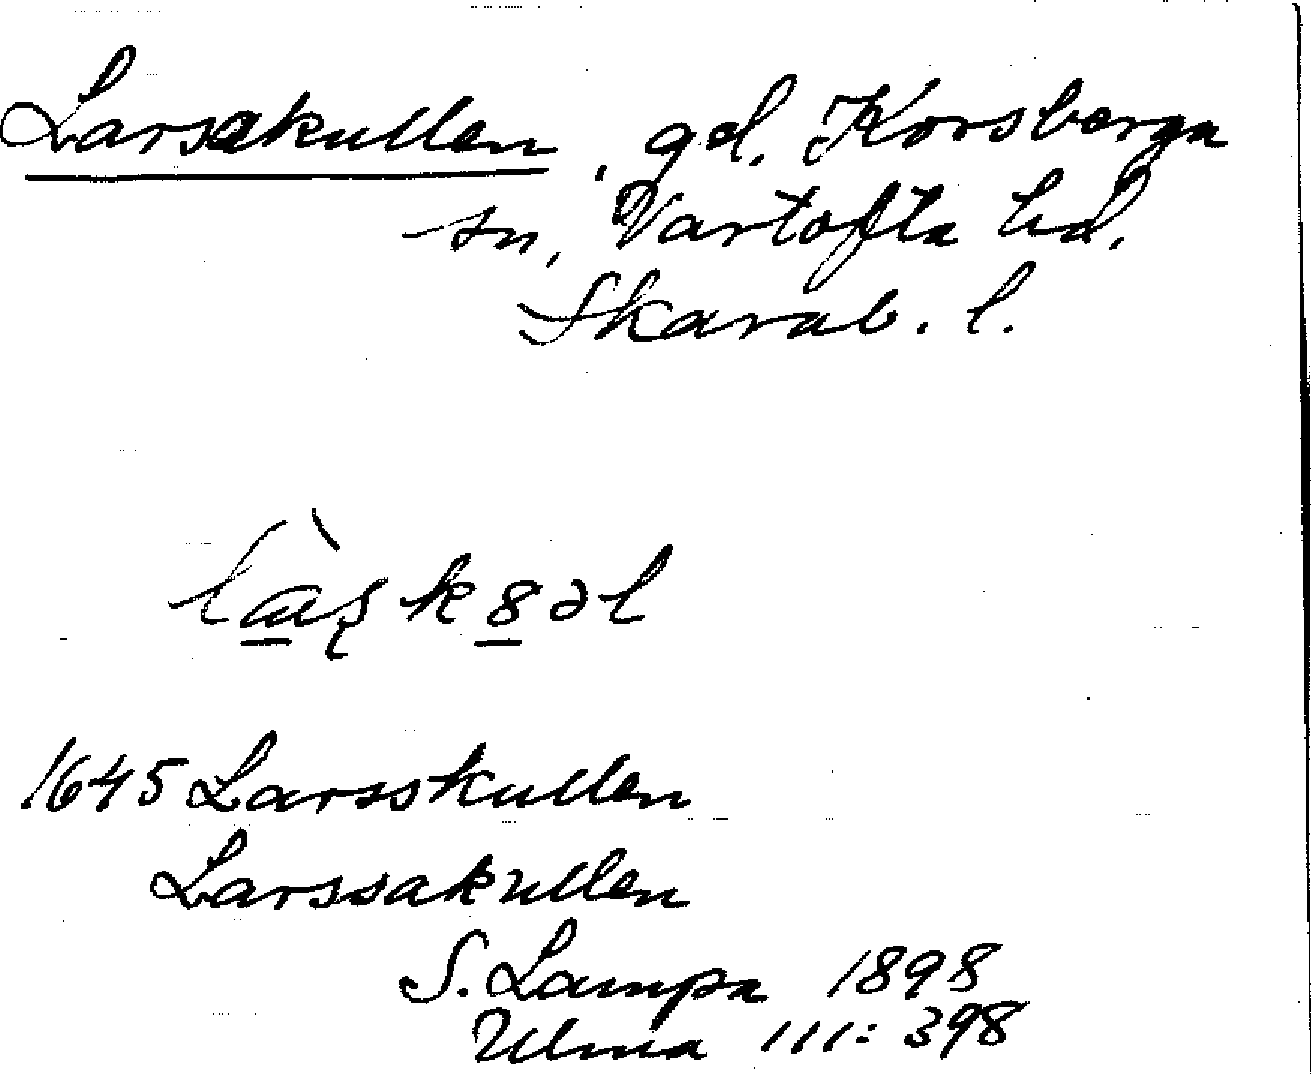 Larsakullen, gd. Korsberga
sn, Vartofta hd.
Skarab. l.
1645 Larsskullen
Larssakullen
S. Lampa 1898
Ulma 111:398